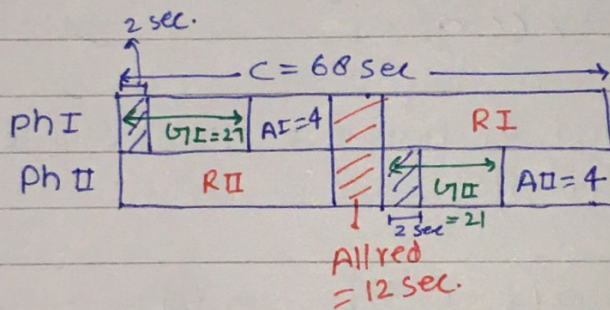 2 sec.
C = 68 sec
Ph I GI=27 AI=4 RI
Ph II RII GII =21 AII=4
2 sec
All red
= 12 sec.